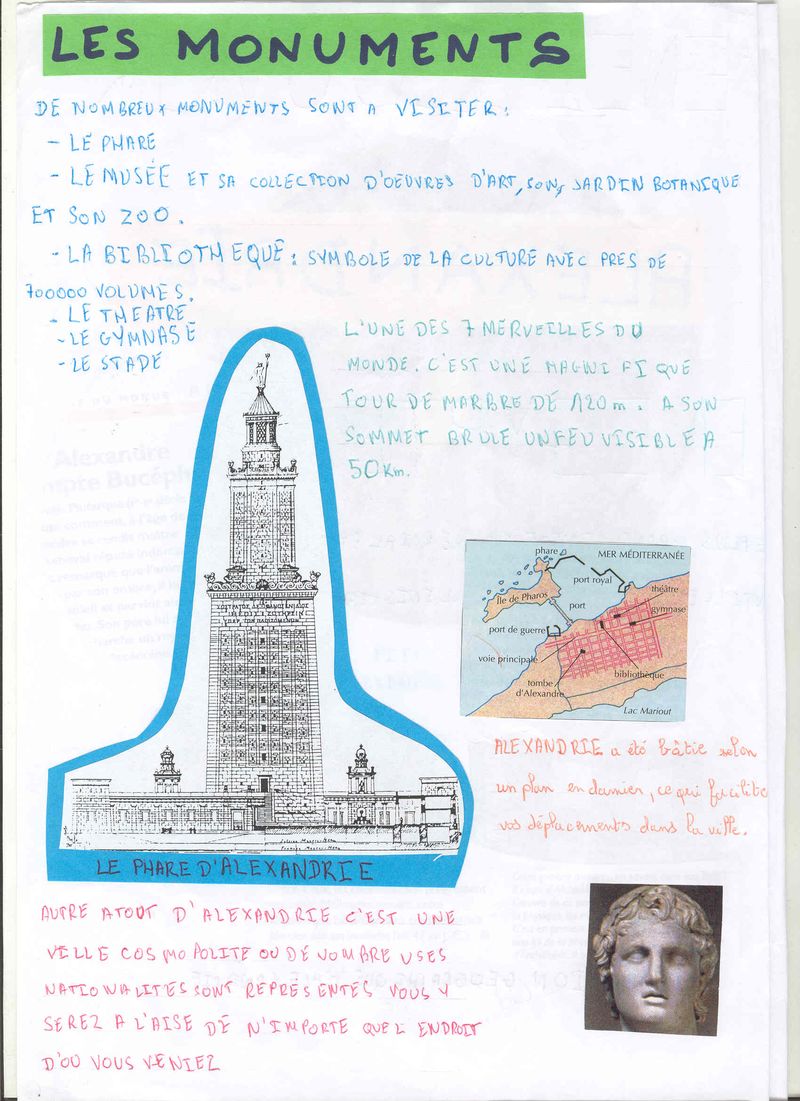 LES MONUMENTS
DE NOMBREUX MONUMENTS SONT A VISITER :
- LE PHARE
- LE MUSÉE ET SA COLLECTION D'OEUVRES D'ART, SON, JARDIN BOTANIQUE
ET SON ZOO.
- LA BIBLIOTHEQUE : SYMBOLE DE LA CULTURE AVEC PRES DE
700000 VOLUMES.
- LE THEATRE
- LE GYMNASE
- LE STADE
L'UNE DES 7 MERVEILLES DU
MONDE. C'EST UNE MAGNIFIQUE
TOUR DE MARBRE DE 120m. A SON
SOMMET BRULE UN FEU VISIBLE A
50 Km.
phare
MER MÉDITERRANÉE
port royal
théâtre
Île de Pharos
port
gymnase
port de guerre
voie principale
bibliothèque
tombe
d'Alexandre
Lac Mariout
ALEXANDRIE a été bâtie selon
un plan en damier, ce qui facilite
vos déplacements dans la ville.
LE PHARE D'ALEXANDRIE
AUTRE ATOUT D'ALEXANDRIE C'EST UNE
VILLE COSMOPOLITE OU DE NOMBREUSES
NATIONALITES SONT REPRESENTES VOUS Y
SEREZ A L'AISE DE N'IMPORTE QUEL ENDROIT
D'OU VOUS VENIEZ